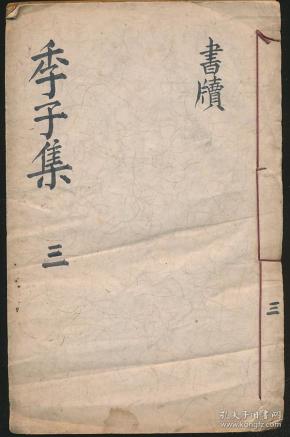 書牘
季子集
三
三
孔夫子旧书网
www.kongfz.com